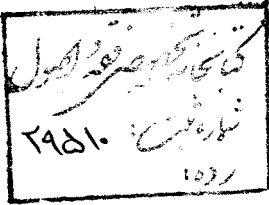 کتابخانه تخصصی فقه و اصول
شماره ثبت: ۲۹۵۱۰
رده: